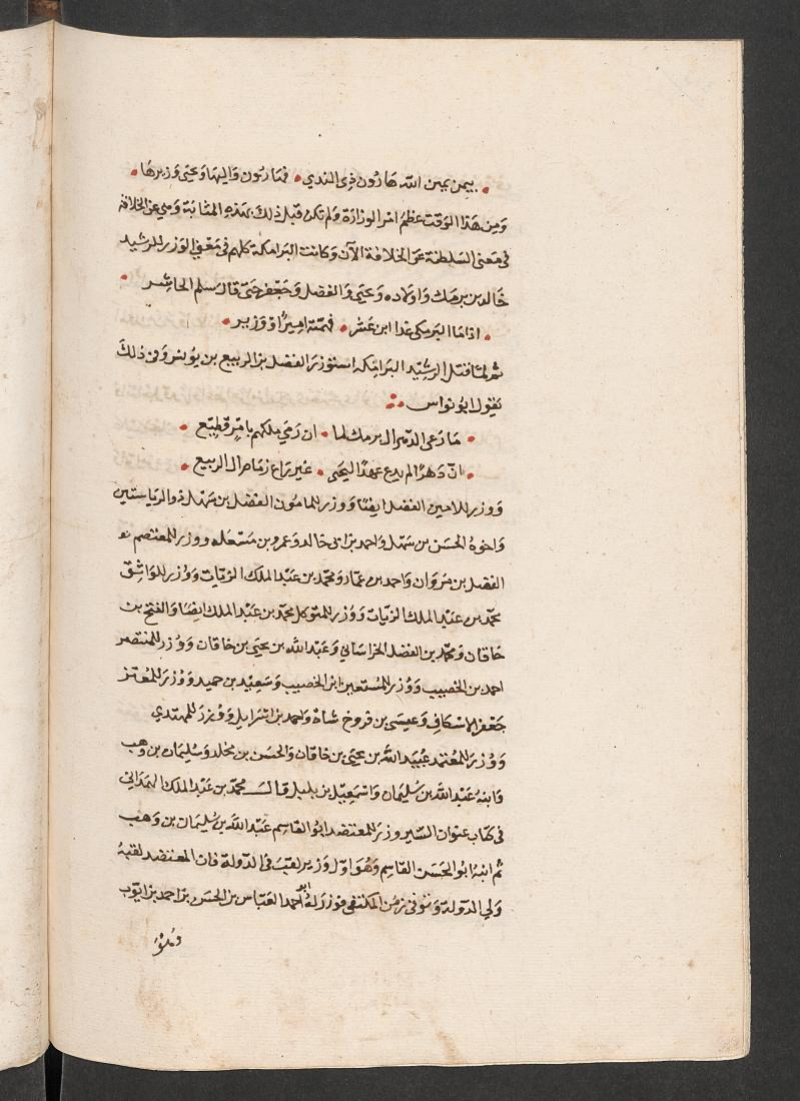 بيمن يمين الله هارون ذي الندي • فهارون واليها ويحيى وزيرها •
ومن هذا الوقت عظم امر الوزارة ولم تكن قبل ذلك بهذه المثابة وهي عن الخلافة
في معنى السلطنة عن الخلافة الآن وكانت البرامكة كلهم في معنى الوزر للرشيد
خالد بن برمك واولاده ويحيى والفضل وجعفر حتى قال سلم الخاسر •
• اذا ما البرمكي غدا ابن عشر • فهمته امير او وزير •
ثم لما قتل الرشيد البرامكة استوزر الفضل بن الربيع بن يونس وفي ذلك
يقول ابو نواس
• ما رعى الدهر ال برمك لما • ان رمي ملكهم بامر فظيع •
• ان دهرا لم يدع عهدا ليحيى • غير راع ذمام ال الربيع •
ووزر للامين الفضل ايضا ووزر للمامون الفضل بن سهل ذو الرياستين
واخوه الحسن بن سهل واحمد بن ابي خالد وعمرو بن مسعده ووزر للمعتصم
الفضل بن مروان واحمد بن عمار ومحمد بن عبد الملك الزيات ووزر للواثق
محمد بن عبد الملك الزيات ووزر للمتوكل محمد بن عبد الملك ايضا والفتح بن
خاقان ومحمد بن الفضل الخراساني وعبد الله بن يحيى بن خاقان ووزر للمنتصر
احمد بن الخصيب ووزر للمستعين ابن الخصيب وسعيد بن حميد ووزر للمعتز
جعفر الاسكافي وعيسى بن فروخ شاه واحمد بن اسرايل ووزر للمهتدي
ووزر للمعتمد عبيد الله بن يحيى بن خاقان والحسن بن مخلد وسليمان بن وهب
وابنه عبد الله بن سليمان واسمعيل بن بلبل قال محمد بن عبد الملك الهمداني
في كتاب عنوان السير وزر للمعتضد ابو القاسم عبد الله بن سليمان بن وهب
ثم ابنه ابو الحسن القاسم وهو اول وزير لقب في الدولة فان المعتضد لقبه
ولي الدولة وتوفي زمن المكتفي فوزر له ابو احمد العباس بن الحسن بن احمد بن ايوب